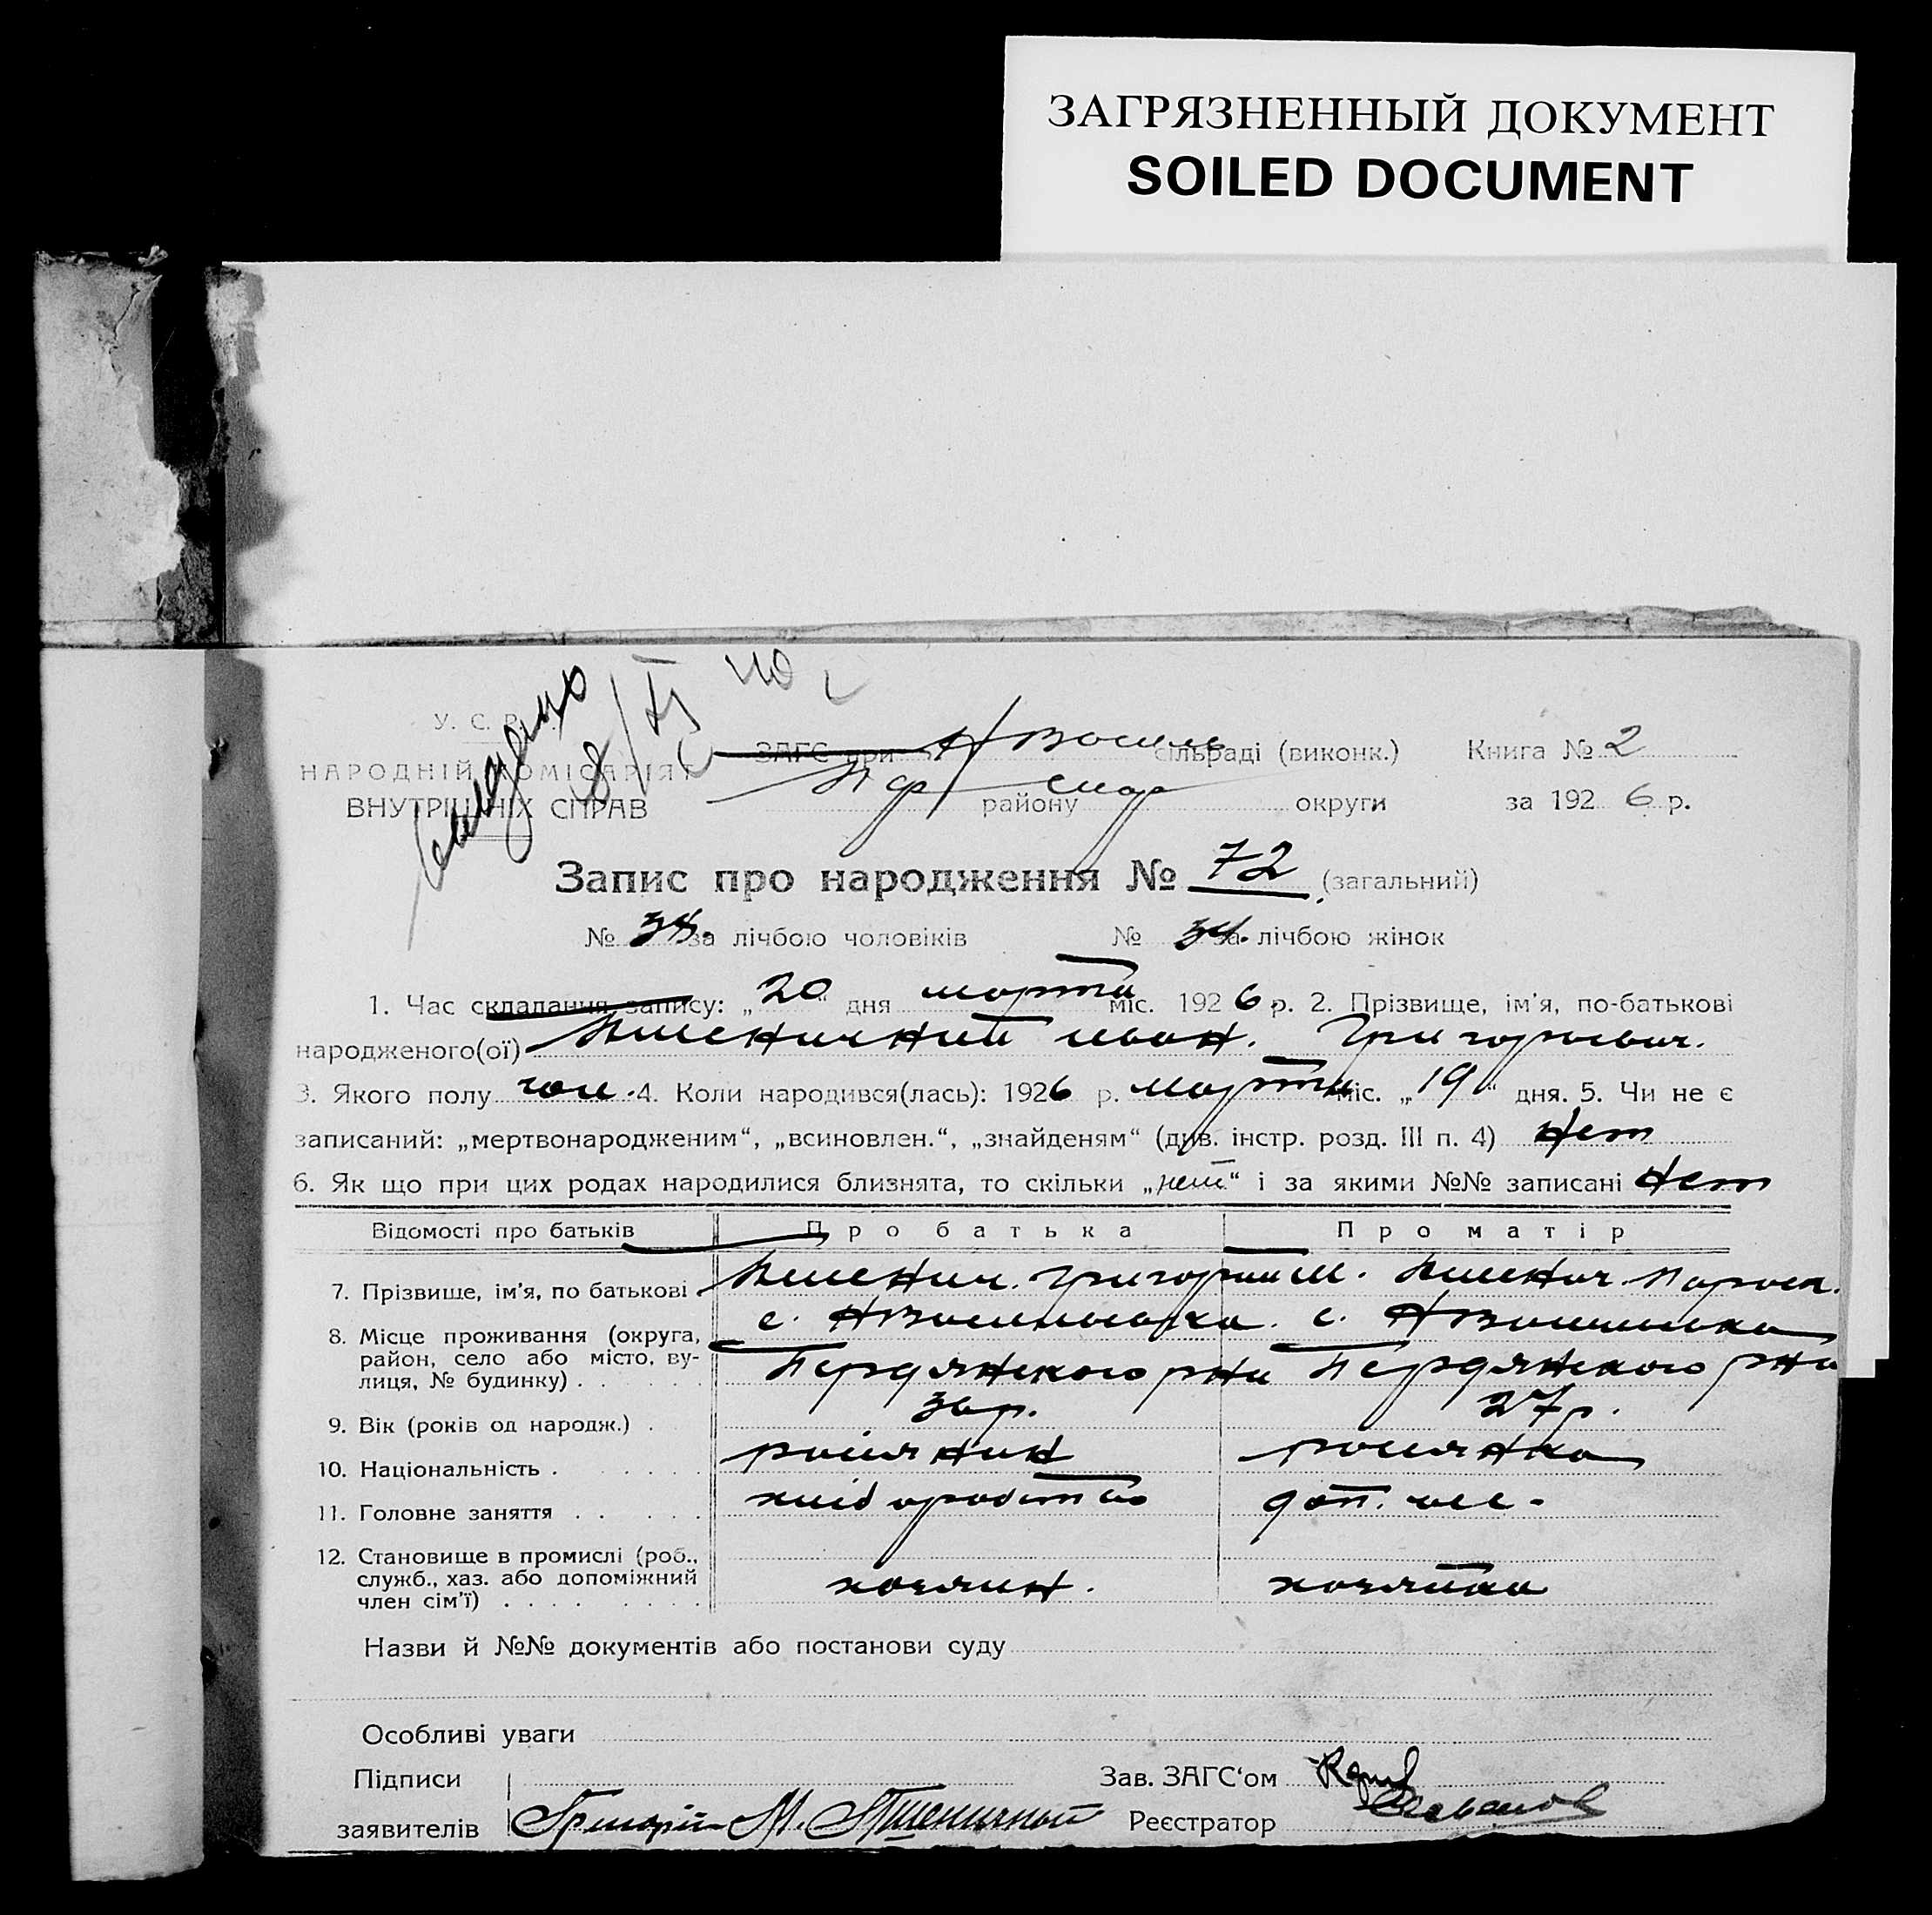 ЗАГРЯЗНЕННЫЙ ДОКУМЕНТ
SOILED DOCUMENT
У. С. Р. Р.
НАРОДНІЙ КОМІСАРІЯТ
ВНУТРІШНІХ СПРАВ
ЗАГС при сільраді (виконк.) Книга № 2
району округи за 1926 р.
Запис про народження № 72 (загальний)
№ 38. за лічбою чоловіків № 34. за лічбою жінок
1. Час складання запису: „20“ дня марта міс. 1926 р. 2. Прізвище, ім'я, по-батькові
народженого(ої) Пшеничний иван. Григорович.
3. Якого полу чол. 4. Коли народився(лась): 1926 р. марта міс. „19“ дня. 5. Чи не є
записаний: „мертвонародженим“, „всиновлен.“, „знайденям“ (див. інстр. розд. III п. 4) Нет
6. Як що при цих родах народилися близнята, то скільки „нет“ і за якими №№ записані Нет
Відомості про батьків Про батька Про матір
7. Прізвище, ім'я, по батькові Пшенич. Григорий М. Пшенич.
8. Місце проживання (округа, с. с.
район, село або місто, ву-
лиця, № будинку) Бердянского рна Бердянского рна
9. Вік (років од народж.) 36 р. 27 р.
10. Національність росіянин росіянка
11. Головне заняття хліборобство
12. Становище в промислі (роб.,
служб., хаз. або допоміжний хозяин. хозяйка
член сім'ї)
Назви й №№ документів або постанови суду
Особливі уваги
Підписи Зав. ЗАГС'ом
заявителів Григорій М. Пшеничный Реєстратор